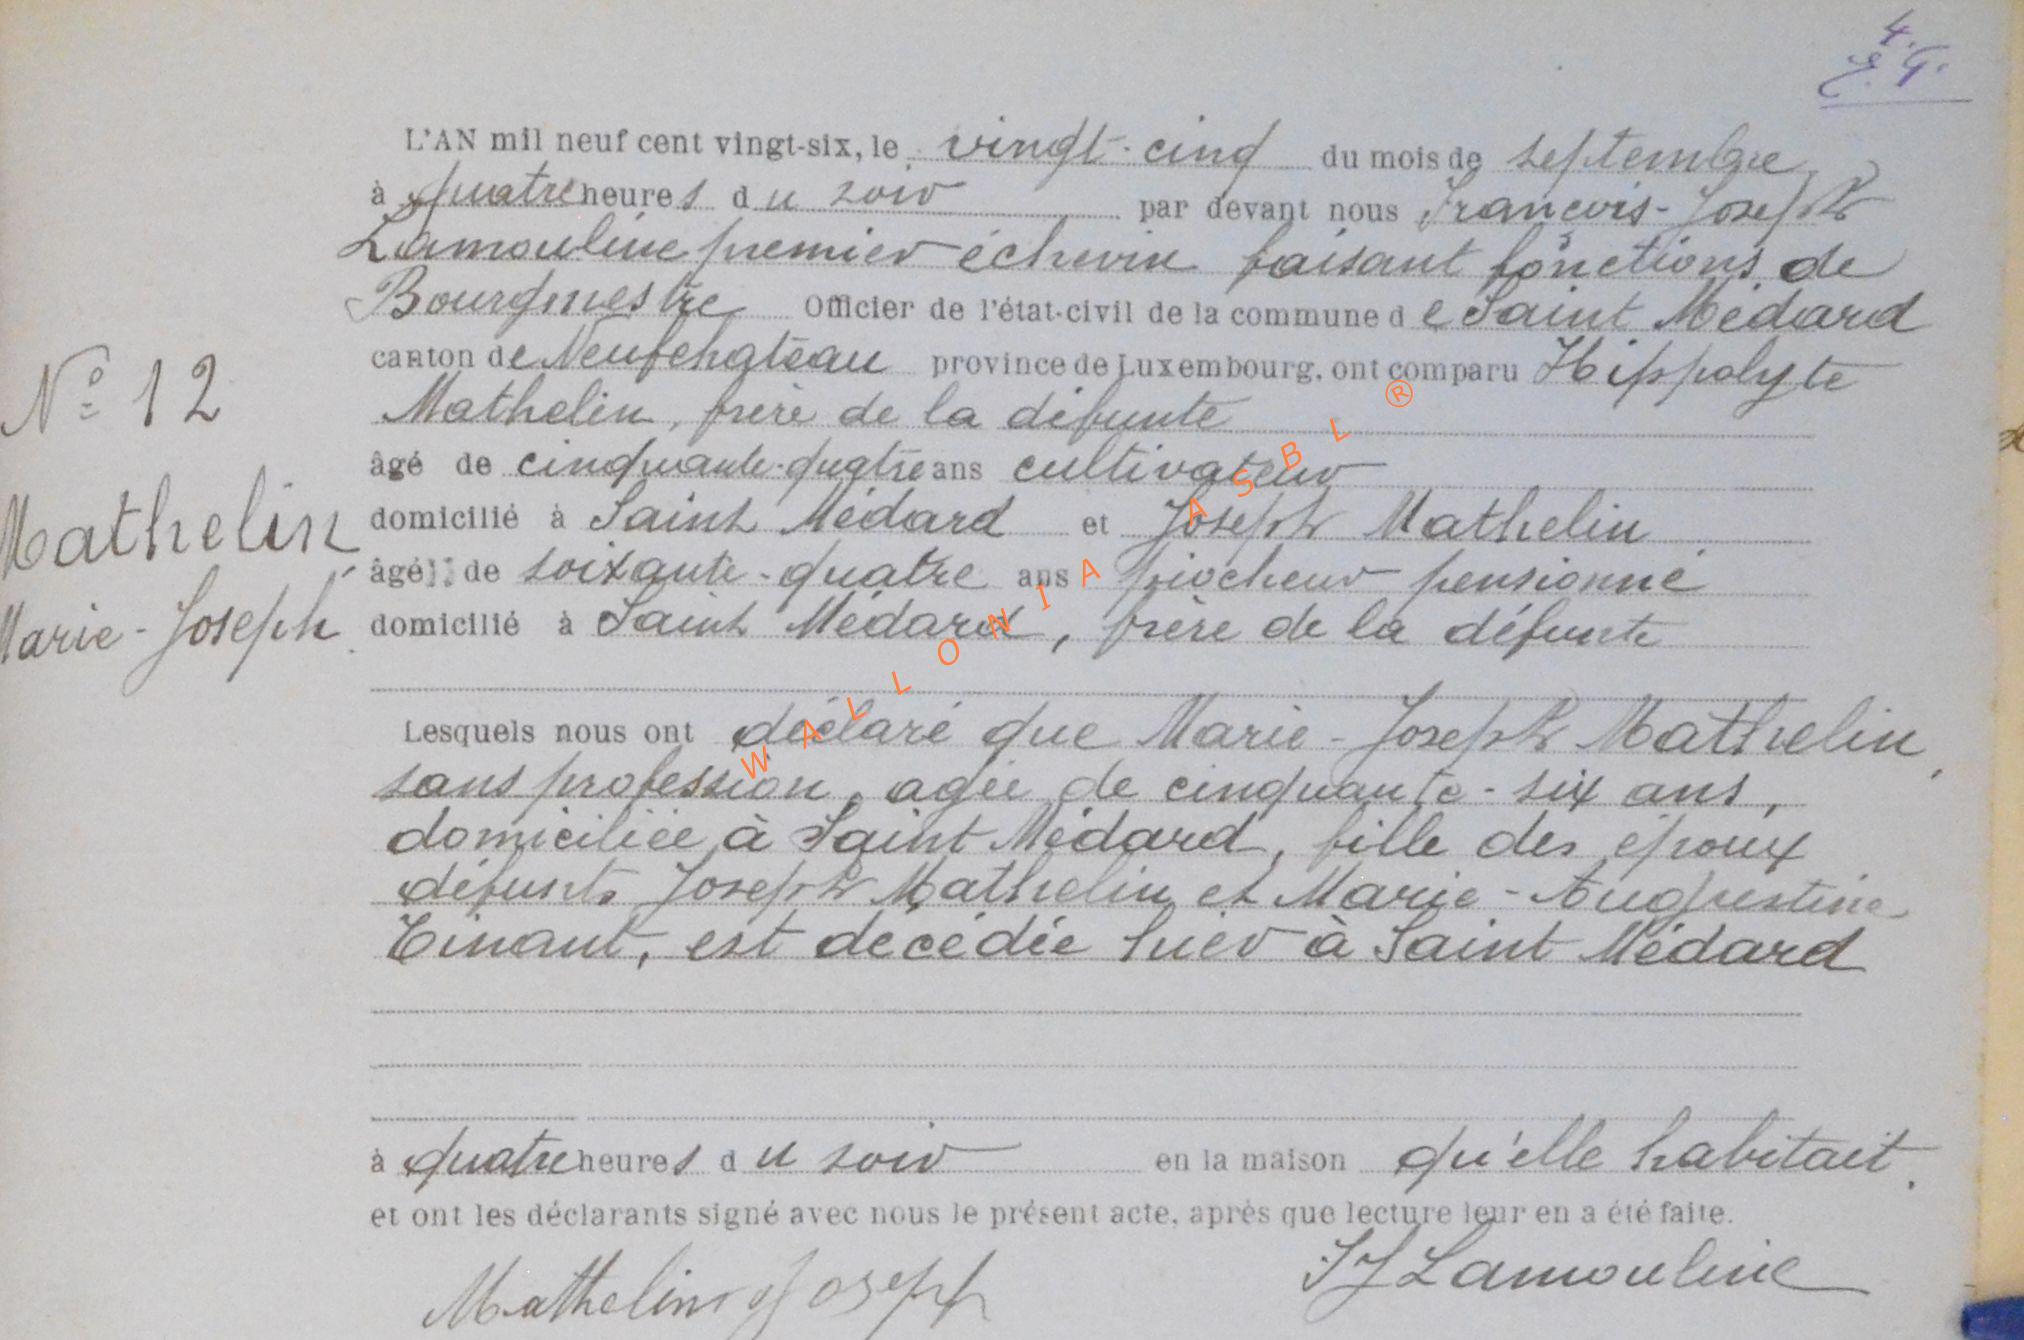 4.
L'AN mil neuf cent vingt-six, le vingt-cinq du mois de septembre
à quatre heures du soir par devant nous François-Joseph
Lamouline premier échevin faisant fonctions de
Bourgmestre Officier de l'état-civil de la commune de Saint Médard
canton de Neufchateau province de Luxembourg, ont comparu Hippolyte
N° 12
Mathelin, frère de la défunte
âgé de cinquante-quatre ans cultivateur
Mathelin
domicilié à Saint Médard et Joseph Mathelin
âgé de soixante-quatre ans piocheur pensionné
Marie-Joseph
domicilié à Saint Médard, frère de la défunte
WALLONIA ASBL ®
Lesquels nous ont déclaré que Marie-Joseph Mathelin,
sans profession, agée de cinquante-six ans,
domiciliée à Saint Médard, fille des époux
défunts Joseph Mathelin et Marie-Augustine
Tinant, est décédée hier à Saint Médard
à quatre heures du soir en la maison qu'elle habitait.
et ont les déclarants signé avec nous le présent acte, après que lecture leur en a été faite.
Mathelin Joseph FJ Lamouline